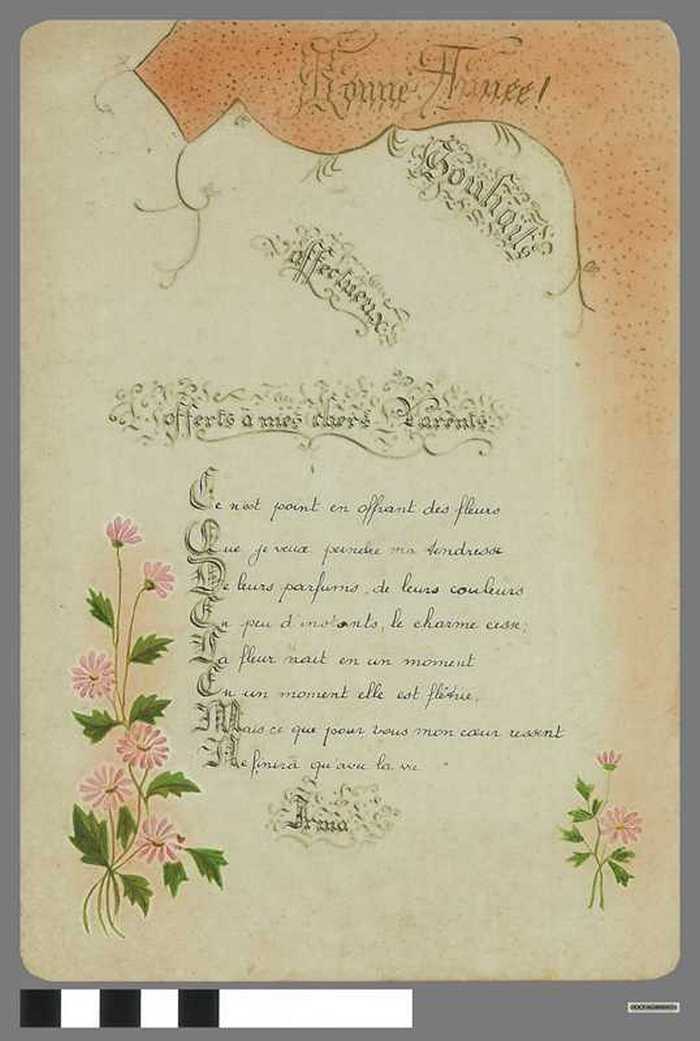 Bonne Année!
Souhaits
affectueux
offerts à mes chers Parents.
Ce n'est point en offrant des fleurs
Que je veux peindre ma tendresse
De leurs parfums, de leurs couleurs
En peu d'instants, le charme cesse;
La fleur nait en un moment
En un moment elle est flétrie.
Mais ce que pour vous mon cœur ressent
Ne finira qu'avec la vie.
Irma